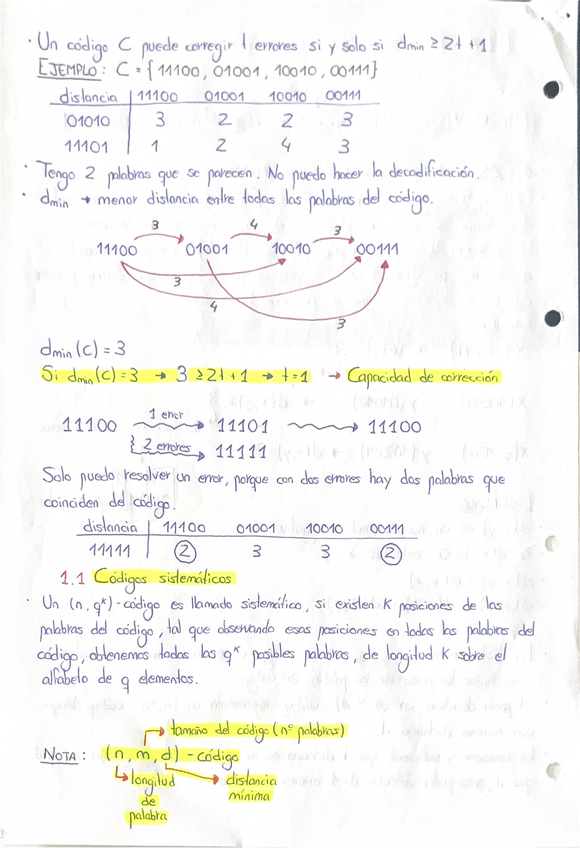 · Un código C puede corregir t errores si y solo si dmin ≥ 2t + 1
EJEMPLO: C = {11100, 01001, 10010, 00111}
distancia | 11100 01001 10010 00111
01010 | 3 2 2 3
11101 | 1 2 4 3
· Tengo 2 palabras que se parecen. No puedo hacer la decodificación.
· dmin → menor distancia entre todas las palabras del código.
3 4 3
11100 01001 10010 00111
3
4
3
dmin(C) = 3
Si dmin(C) = 3 → 3 ≥ 2t + 1 → t = 1 → Capacidad de corrección
11100 1 error 11101 11100
2 errores 11111
Solo puedo resolver un error, porque con dos errores hay dos palabras que
coinciden del código.
distancia | 11100 01001 10010 00111
11111 | 2 3 3 2
1.1 Códigos sistemáticos
· Un (n, q^k) - código es llamado sistemático, si existen K posiciones de las
palabras del código, tal que observando esas posiciones en todas las palabras del
código, obtenemos todas las q^k posibles palabras, de longitud K sobre el
alfabeto de q elementos.
→ tamaño del código (nº palabras)
NOTA: (n, m, d) - código
→ longitud → distancia
de mínima
palabra